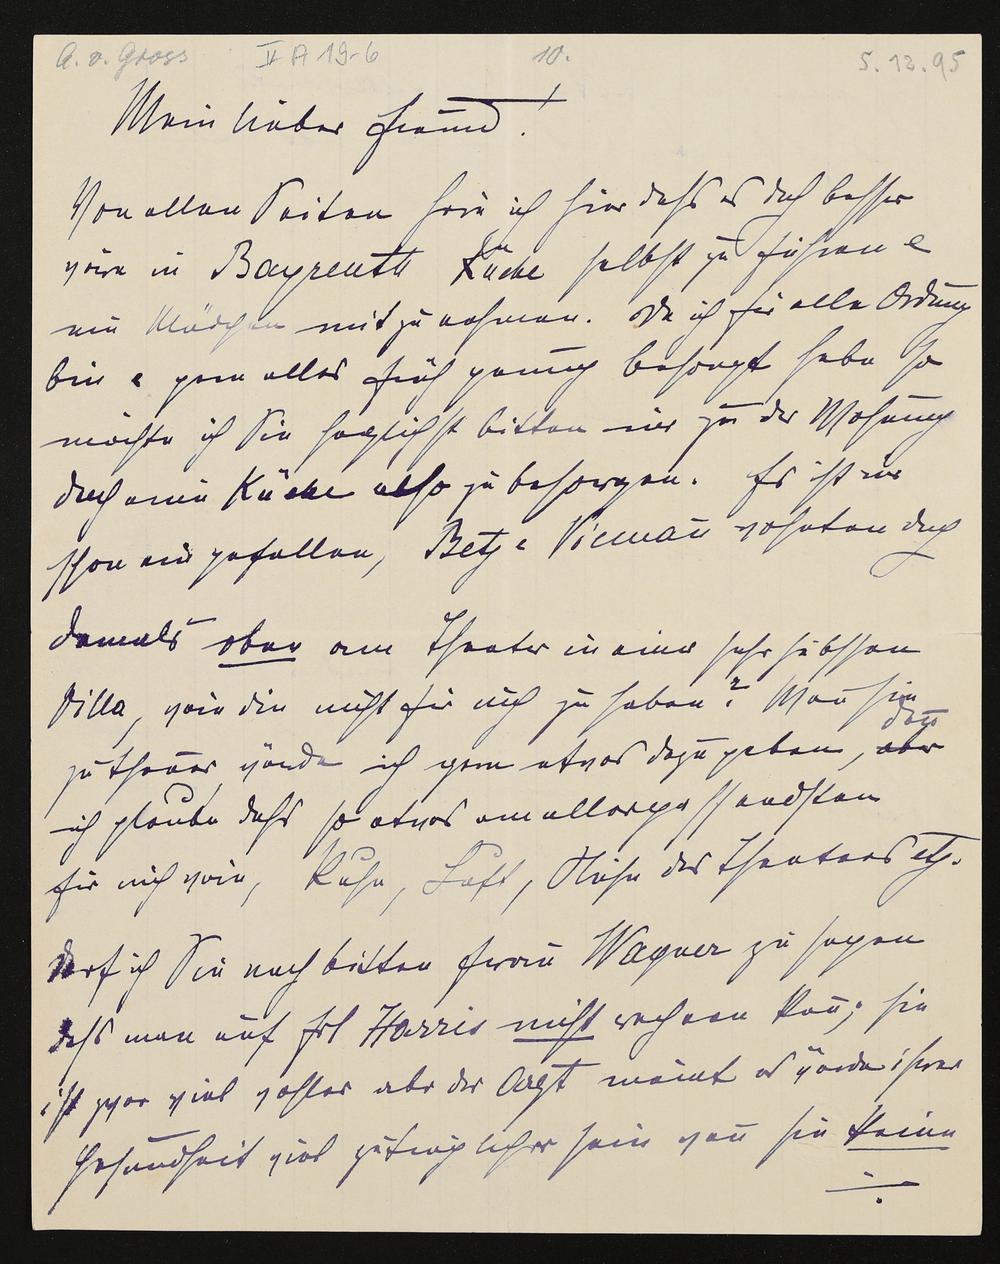 A. v. Gross II A 19-6 10. 5.12.95
Mein lieber Freund!
Von allen Seiten höre ich hier daß es doch besser
wäre in Bayreuth Küche selbst zu führen &
ein Mädchen mitzunehmen. Da ich für alle Ordnung
bin & gern alles früh genug besorgt habe so
möchte ich Sie herzlichst bitten mir zu der Wohnung
doch eine Küche also zu besorgen. Es ist mir
schon eingefallen, Betz & Niemann wohnten doch
damals oben am Theater in einer sehr hübschen
Villa, wäre die nicht für mich zu haben? Wenn sie
zu theuer, würde ich gern etwas dazu geben, denn
ich glaube daß so etwas am allerpassendsten
für mich wäre, Ruhe, Luft, Nähe des Theaters etz.
Darf ich Sie noch bitten Frau Wagner zu sagen
daß man auf Frl Harris nicht rechnen kann; sie
ist zwar viel wohler aber der Arzt meint es würde ihrer
Gesundheit viel zuträglicher sein wenn sie keine